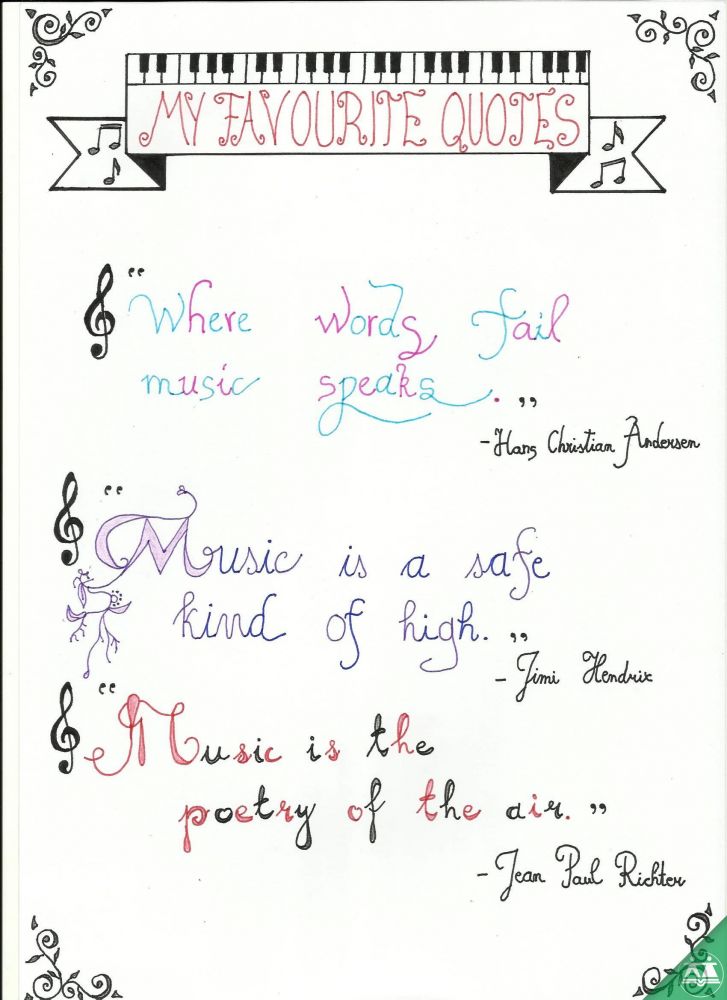 MY FAVOURITE QUOTES
“Where words fail
music speaks.”
-Hans Christian Andersen
“Music is a safe
kind of high.”
- Jimi Hendrix
“Music is the
poetry of the air.”
- Jean Paul Richter